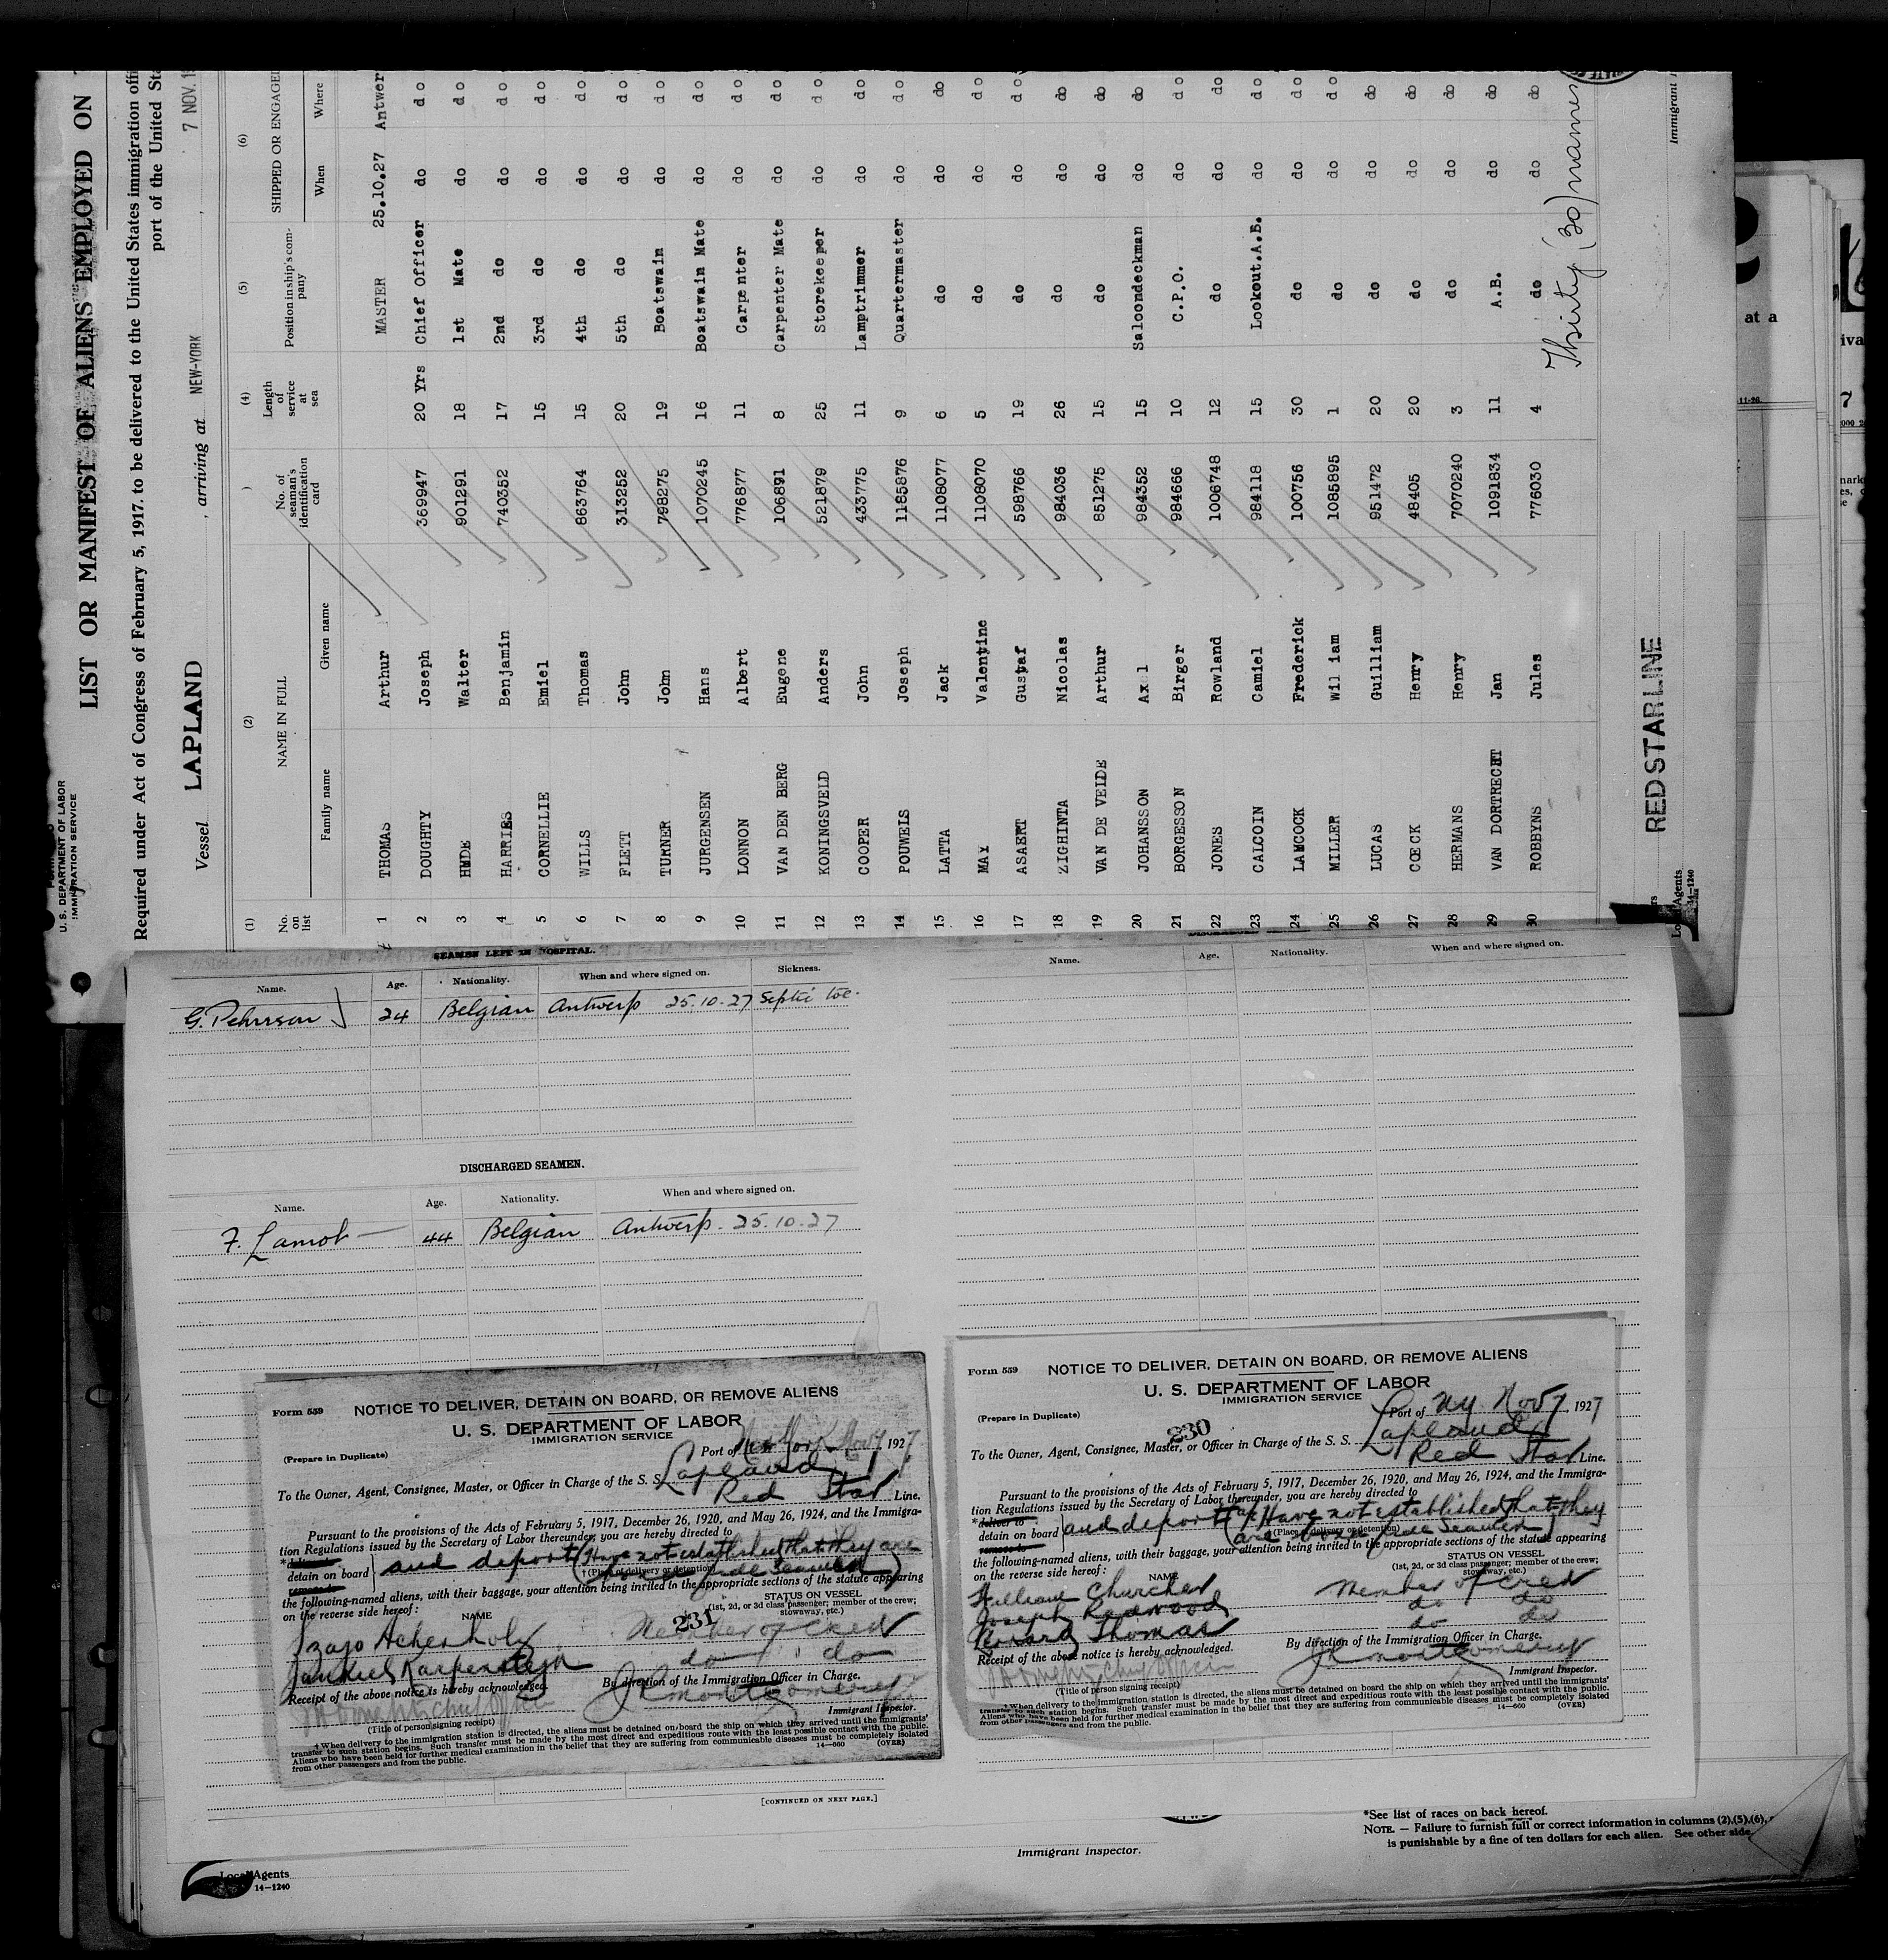 U. S. DEPARTMENT OF LABOR
IMMIGRATION SERVICE
LIST OR MANIFEST OF ALIENS EMPLOYED ON
Required under Act of Congress of February 5, 1917, to be delivered to the United States immigration
port of the United
Vessel LAPLAND, arriving at NEW-YORK, 7 NOV.
(1) (2) ) (4) (5) (6)
No. on list NAME IN FULL No. of seaman's identification card Length of service at sea Position in ship's company SHIPPED OR ENGAGED
Family name Given name When Where
1 THOMAS Arthur MASTER 25.10.27 Antwer
2 DOUGHTY Joseph 369947 20 Yrs Chief Officer do do
3 Walter 901291 18 1st Mate do do
4 HARRIES Benjamin 740352 17 2nd do do do
5 CORNELLIE Emiel 15 3rd do do do
6 WILLS Thomas 863764 15 4th do do do
7 FLETT John 313252 20 5th do do do
8 TURNER John 798275 19 Boatswain do do
9 JURGENSEN Hans 1070245 16 Boatswain Mate do do
10 LONNON Albert 776877 11 Carpenter do do
11 VAN DEN BERG Eugene 106891 8 Carpenter Mate do do
12 KONINGSVELD Anders 521879 25 Storekeeper do do
13 COOPER John 433775 11 Lamptrimmer do do
14 POUWELS Joseph 1185876 9 Quartermaster do do
15 LATTA Jack 1108077 6 do do do
16 MAY Valentine 1108070 5 do do do
17 ASAERT Gustaf 598766 19 do do do
18 ZIGHINTA Nicolas 984036 26 do do do
19 VAN DE VELDE Arthur 851275 15 do do do
20 JOHANSSON Axel 984352 15 Saloondeckman do do
21 BORGESSON Birger 984666 10 C.P.O. do do
22 JONES Rowland 1006748 12 do do do
23 CALCOIN Camiel 984118 15 Lookout.A.B. do do
24 LAWCOCK Frederick 100756 30 do do do
25 MILLER Wil iam 1085895 1 do do do
26 LUCAS Guilliam 951472 20 do do do
27 COECK Henry 48405 20 do do do
28 HERMANS Henry 7070240 3 do do do
29 VAN DORTRECHT Jan 1091834 11 A.B. do do
30 ROBBYNS Jules 776030 4 do do do
Thirty (30)
RED STAR LINE
Agents
14—1240
Immigrant
SEAMEN LEFT IN HOSPITAL.
Name. Age. Nationality. When and where signed on. Sickness.
G. Pehrrson 24 Belgian Antwerp 25.10.27 Septic toe.
DISCHARGED SEAMEN.
Name. Age. Nationality. When and where signed on.
F. Lamot 44 Belgian Antwerp. 25.10.27
Name. Age. Nationality. When and where signed on.
Form 559 NOTICE TO DELIVER, DETAIN ON BOARD, OR REMOVE ALIENS
U. S. DEPARTMENT OF LABOR
IMMIGRATION SERVICE
(Prepare in Duplicate)
Port of New York Nov 7, 1927
To the Owner, Agent, Consignee, Master, or Officer in Charge of the S. S. Lapland
Red Star Line.
Pursuant to the provisions of the Acts of February 5, 1917, December 26, 1920, and May 26, 1924, and the Immigra-
tion Regulations issued by the Secretary of Labor thereunder, you are hereby directed to
*deliver to
detain on board and deport (Have not established that they are
remove to
†(Place of delivery or detention) bona fide Seamen)
the following-named aliens, with their baggage, your attention being invited to the appropriate sections of the statute appearing
on the reverse side hereof:
NAME
STATUS ON VESSEL
(1st, 2d, or 3d class passenger; member of the crew;
stowaway, etc.)
231
Ackerholz Member of Crew
Karpenstein do do
Receipt of the above notice is hereby acknowledged.
By direction of the Immigration Officer in Charge.
Montgomery
Immigrant Inspector.
(Title of person signing receipt)
† When delivery to the immigration station is directed, the aliens must be detained on board the ship on which they arrived until the immigrants'
transfer to such station begins. Such transfer must be made by the most direct and expeditious route with the least possible contact with the public.
Aliens who have been held for further medical examination in the belief that they are suffering from communicable diseases must be completely isolated
from other passengers and from the public.
14—660 (OVER)
Form 559 NOTICE TO DELIVER, DETAIN ON BOARD, OR REMOVE ALIENS
U. S. DEPARTMENT OF LABOR
IMMIGRATION SERVICE
(Prepare in Duplicate)
230
Port of NY Nov 7, 1927
To the Owner, Agent, Consignee, Master, or Officer in Charge of the S. S. Lapland
Red Star Line.
Pursuant to the provisions of the Acts of February 5, 1917, December 26, 1920, and May 26, 1924, and the Immigra-
tion Regulations issued by the Secretary of Labor thereunder, you are hereby directed to
*deliver to
detain on board and deport Have not established that they
remove to
are bona fide Seamen †(Place of delivery or detention)
the following-named aliens, with their baggage, your attention being invited to the appropriate sections of the statute appearing
on the reverse side hereof:
NAME
STATUS ON VESSEL
(1st, 2d, or 3d class passenger; member of the crew;
stowaway, etc.)
William Churcher Member of Crew
Joseph Redwood do do
Thomas do do
Receipt of the above notice is hereby acknowledged.
By direction of the Immigration Officer in Charge.
Montgomery
Immigrant Inspector.
(Title of person signing receipt)
† When delivery to the immigration station is directed, the aliens must be detained on board the ship on which they arrived until the immigrants'
transfer to such station begins. Such transfer must be made by the most direct and expeditious route with the least possible contact with the public.
Aliens who have been held for further medical examination in the belief that they are suffering from communicable diseases must be completely isolated
from other passengers and from the public.
14—660 (OVER)
[CONTINUED ON NEXT PAGE.]
*See list of races on back hereof.
NOTE. — Failure to furnish full or correct information in columns (2),(5),(6),
is punishable by a fine of ten dollars for each alien. See other side.
Immigrant Inspector.
Local Agents
14—1240
at a